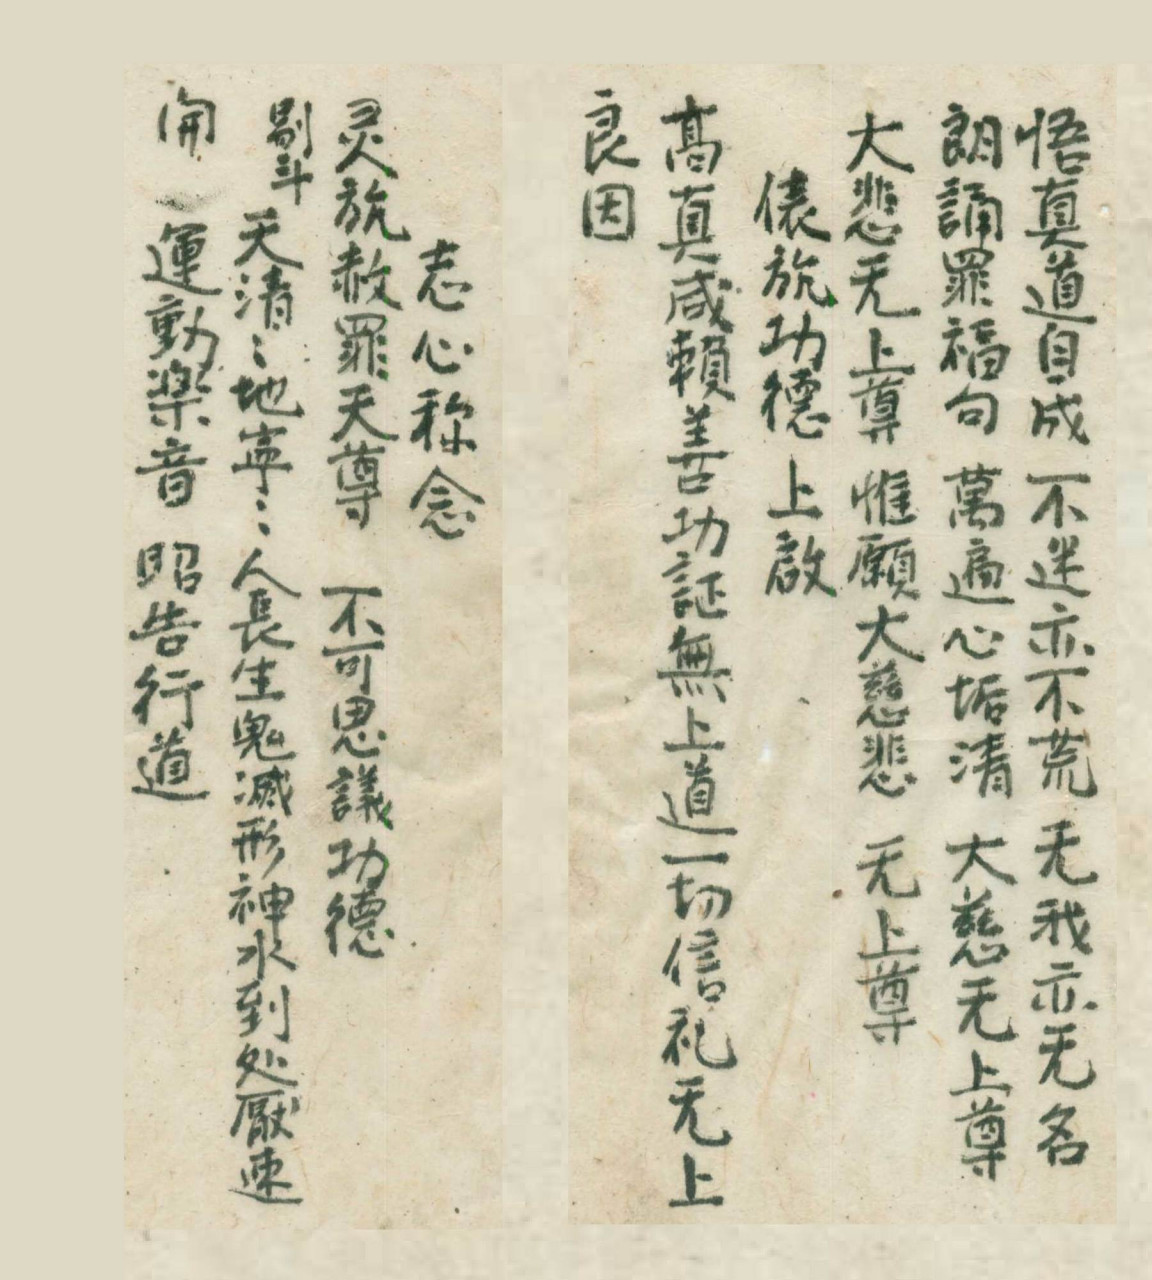 悟真道自成 不迷亦不荒 无我亦无名
朗誦罪福句 萬遍心垢清 大慈无上尊
大悲无上尊 惟願大慈悲 无上尊
功德 上啟
高真咸賴善功証無上道一切信礼无上
良因
志心称念
灵 赦罪天尊 不可思議功德
天清〻地寧〻人長生鬼滅形神水到处厭速
開 運動楽音 昭告行道